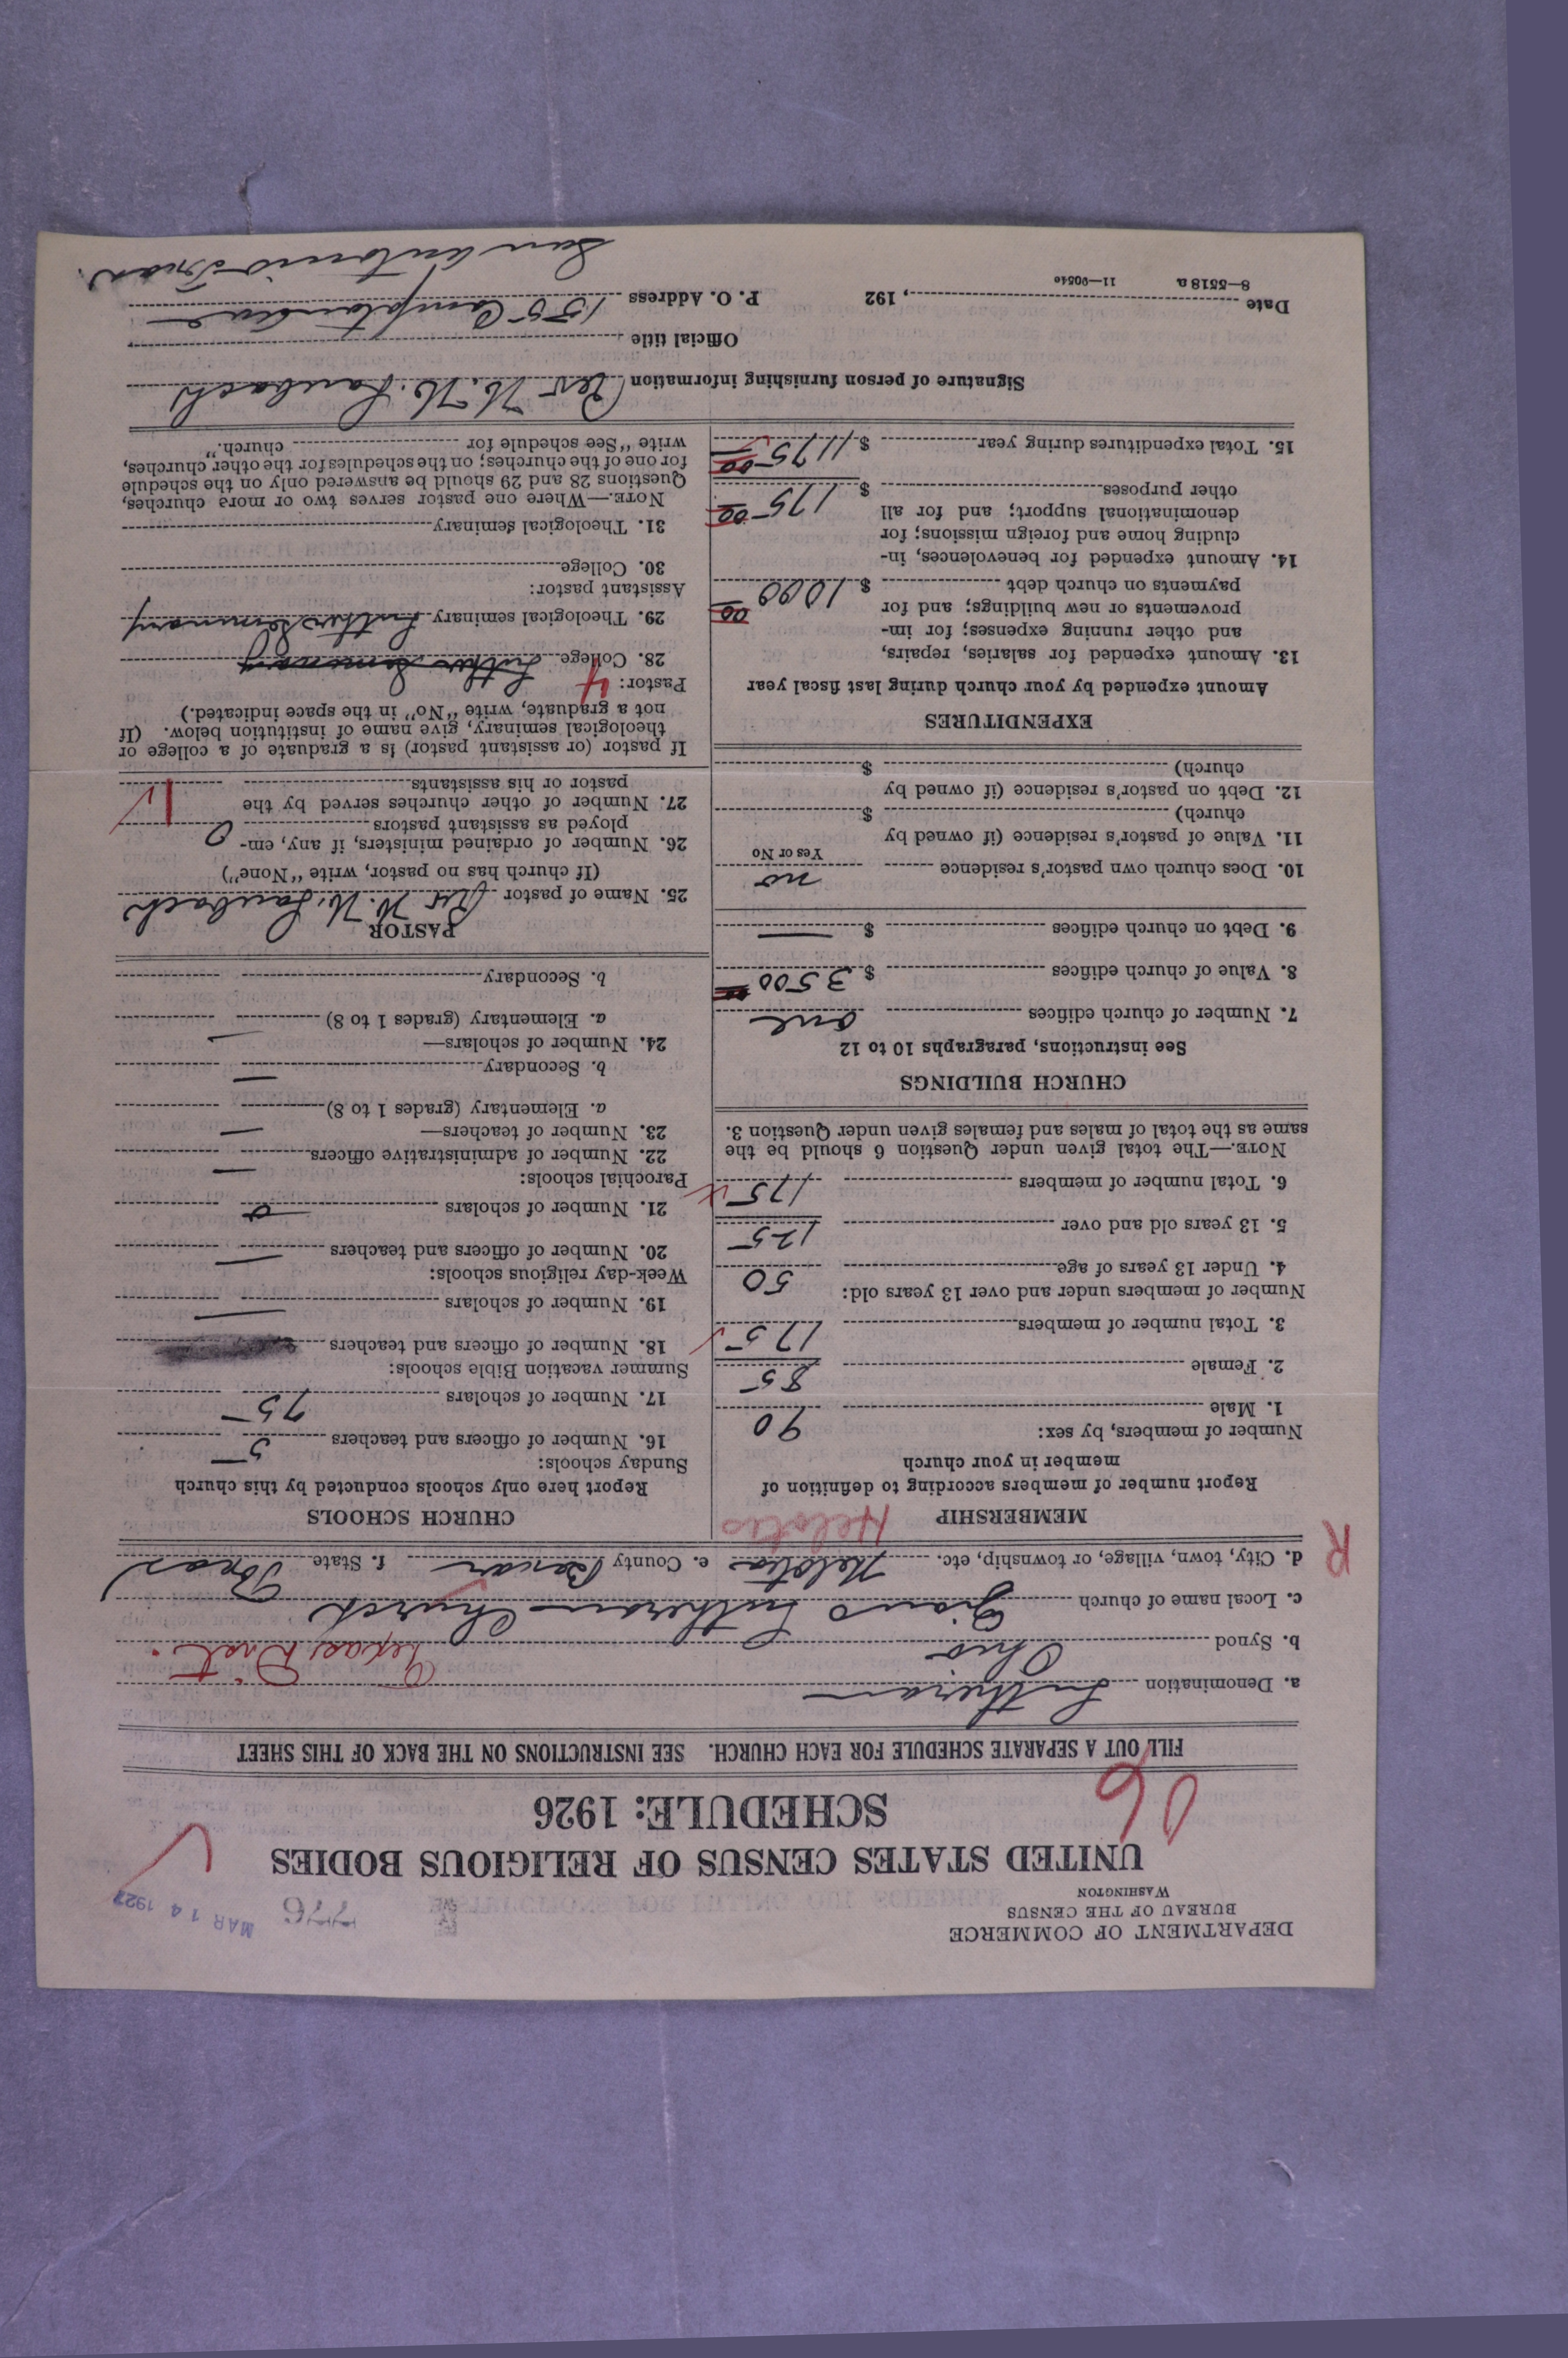 DEPARTMENT OF COMMERCE
BUREAU OF THE CENSUS
WASHINGTON
776
MAR 14 1927
UNITED STATES CENSUS OF RELIGIOUS BODIES
SCHEDULE: 1926
FILL OUT A SEPARATE SCHEDULE FOR EACH CHURCH. SEE INSTRUCTIONS ON THE BACK OF THIS SHEET
a. Denomination Lutheran
b. Synod Ohio Texas Dist.
c. Local name of church Zions Lutheran Church
d. City, town, village, or township, etc. Helotes e. County Bexar f. State Texas
R
Helotes
MEMBERSHIP
Report number of members according to definition of
member in your church
Number of members, by sex:
1. Male 90
2. Female 85
3. Total number of members 175
Number of members under and over 13 years old:
4. Under 13 years of age 50
5. 13 years old and over 125
6. Total number of members 175
NOTE.—The total given under Question 6 should be the
same as the total of males and females given under Question 3.
CHURCH BUILDINGS
See instructions, paragraphs 10 to 12
7. Number of church edifices one
8. Value of church edifices $ 3500
9. Debt on church edifices $ —
10. Does church own pastor's residence no
Yes or No
11. Value of pastor's residence (if owned by
church) $
12. Debt on pastor's residence (if owned by
church) $
EXPENDITURES
Amount expended by your church during last fiscal year
13. Amount expended for salaries, repairs,
and other running expenses; for im-
provements or new buildings; and for
payments on church debt $ 1000 00
14. Amount expended for benevolences, in-
cluding home and foreign missions; for
denominational support; and for all
other purposes $ 175 00
15. Total expenditures during year $ 1175 00
CHURCH SCHOOLS
Report here only schools conducted by this church
Sunday schools:
16. Number of officers and teachers 5
17. Number of scholars 75
Summer vacation Bible schools:
18. Number of officers and teachers
19. Number of scholars —
Week-day religious schools:
20. Number of officers and teachers —
21. Number of scholars 0
Parochial schools:
22. Number of administrative officers —
23. Number of teachers—
a. Elementary (grades 1 to 8) —
b. Secondary —
24. Number of scholars—
a. Elementary (grades 1 to 8) —
b. Secondary
PASTOR
25. Name of pastor Rev. H. H. Laubach
(If church has no pastor, write "None")
26. Number of ordained ministers, if any, em-
ployed as assistant pastors 0
27. Number of other churches served by the
pastor or his assistants 1
If pastor (or assistant pastor) is a graduate of a college or
theological seminary, give name of institution below. (If
not a graduate, write "No" in the space indicated.)
Pastor: 4
28. College Luther Seminary
29. Theological seminary Luther Seminary
Assistant pastor:
30. College
31. Theological seminary
NOTE.—Where one pastor serves two or more churches,
Questions 28 and 29 should be answered only on the schedule
for one of the churches; on the schedules for the other churches,
write "See schedule for church."
Signature of person furnishing information Rev H. H. Laubach
Official title
Date , 192 P. O. Address 155 Compton Ave
San Antonio Texas.
8—5518 a 11—9054e